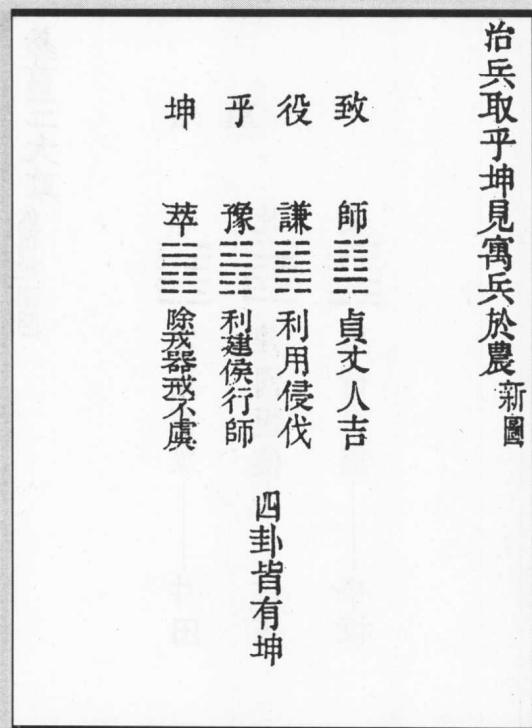 治兵取乎坤見寓兵於農 新圖
致 師 貞丈人吉
役 謙 利用侵伐
乎 豫 利建侯行師
坤 萃 除戎器戒不虞
四卦皆有坤